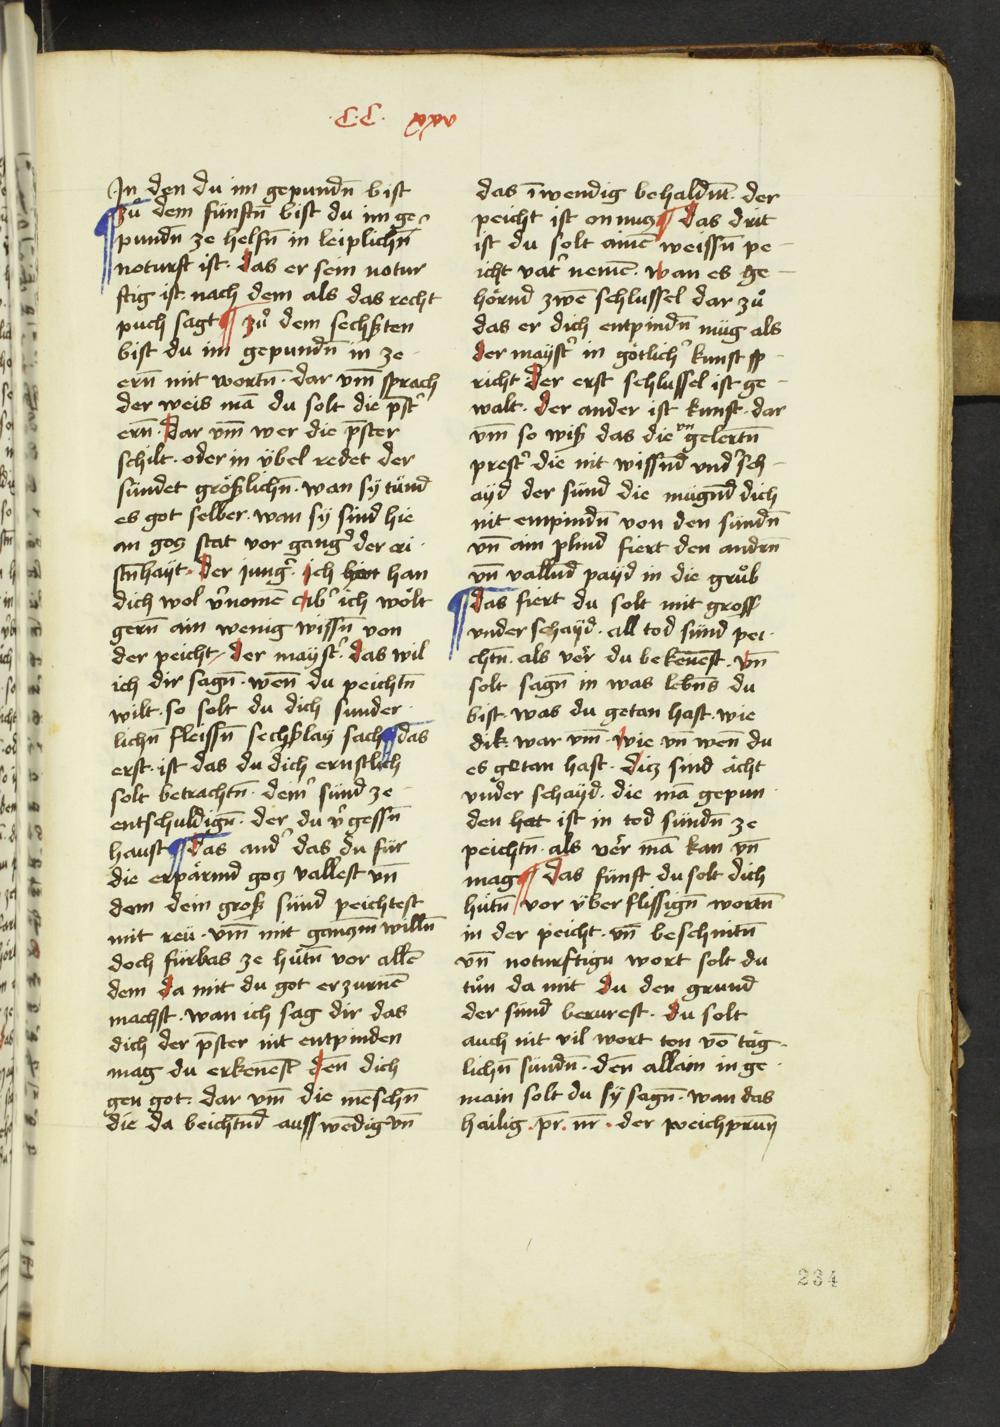 ·C·C· xxv
In den du im gepundn̄ bist
¶ zů dem fünftn̄ bist du im ge
pundn̄ ze helfn̄ in leiplichn̄
noturft ist · das er sein notur
ftig ist · nach dem als das recht
puch sagt ¶ zů dem sechsten
bist du im gepundn̄ in ze
ern̄ mit wortn̄ · dar vm̄ sprach
der weis mā du solt die pst̄
ern̄ · Dar vm̄ wer die pst̄er
schilt · oder in v̈bel redet der
sündet größlichn̄ · wan sÿ tünd
es got selber · wan sÿ sind hie
an gocz stat vor gang der cri
stn̄hayt · Der jung̉ · Ich han
dich wol v̉nomē ab̉ ich wolt
gern̄ ain wenig wissn̄ von
der peicht · Der mayst̉ · Das wil
ich dir sagn̄ · wen̄ du peichtn̄
wilt · so solt du dich sunder
lichn̄ fleissn̄ sechslay sach ¶ das
erst · ist das du dich ernstlich
solt betrachtn̄ · dein̉ sünd ze
entschuldign̄ · der du v̉gessn̄
haust ¶ Das and̉ das du für
die erpärmd gocz vallest vn̄
dem dein groß sünd peichtest
mit reü · vm̄ mit ganczm willn̄
doch fürbas ze hütn̄ vor allē
dem Da mit du got erzurnē
machst · wan ich sag dir das
dich der pst̄er nit entpinden
mag du erkenēst Den̄ dich
gen got · dar vm̄ die mēschn̄
die da beichtnd auss wēdig vn̄
das īwendig behaldnt · der
peicht ist on nucz ¶ Das drit
ist du solt ainē weissn̄ pe
icht vat̉ nemē · wan es ge
hornd zwē schlussel dar zů
das er dich entpindn̄ müg als
Der mayst̉ in götlich̉ kunst sp
richt · Der erst schlussel ist ge
walt · Der ander ist kunst · dar
vm̄ so wiß das die vn gelertn̄
prest̉ die nit wissnd vnd̉ sch
ayd der sünd die mügnd dich
nit empindn̄ von den sündn̄
vn̄ ain plind fiert den andrn̄
vn̄ vallnd payd in die grůb
¶ Das fiert du solt mit gross
vnder schayd · all tod sünd pei
chtn̄ · als ver̉ du bekenēst · Vn̄
solt sagn̄ in was lebns̄ du
bist · was du getan hast · wie
dik war vm̄ · Wie vn̄ wen̄ du
es getan hast · Dicz sind ächt
vnder schayd · die mā gepun
den hat ist in tod sündn̄ ze
peichtn̄ · als ver̉ mā kan vn̄
mag ¶ Das fünft du solt dich
hütn̄ vor v̈ber flissign̄ wortn̄
in der peicht · vn̄ beschnitn̄
vn̄ noturftign wort solt du
tůn da mit Du den grund
der sünd berurest · Du solt
auch nit vil wort ton vō täg
lichn̄ sündn̄ · den̄ allain in ge
main solt du sÿ sagn̄ · wan das
hailig · pr̄ · nr̄ · der weichprun̄
234